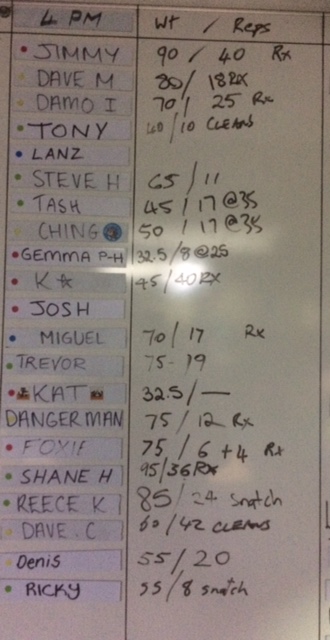 4 PM Wt / Reps
JIMMY 90 / 40 Rx
DAVE M 80/ 18RX
DAMO I 70/ 25 Rx
TONY 40/10 CLEANS
LANZ
STEVE H 65/11
TASH 45/17@35
CHING 50 / 17@35
GEMMA P-H 32.5/8@25
K☆ 45/40RX
JOSH
MIGUEL 70/17 Rx
TREVOR 75-19
KAT 32.5/—
DANGERMAN 75/12 Rx
FOXIE 75/6+4 Rx
SHANE H 95/36RX
REECE K 85/24 Snatch
DAVE.C 60/42 CLEANS
Denis 55/20
RICKY 55/8 snatch